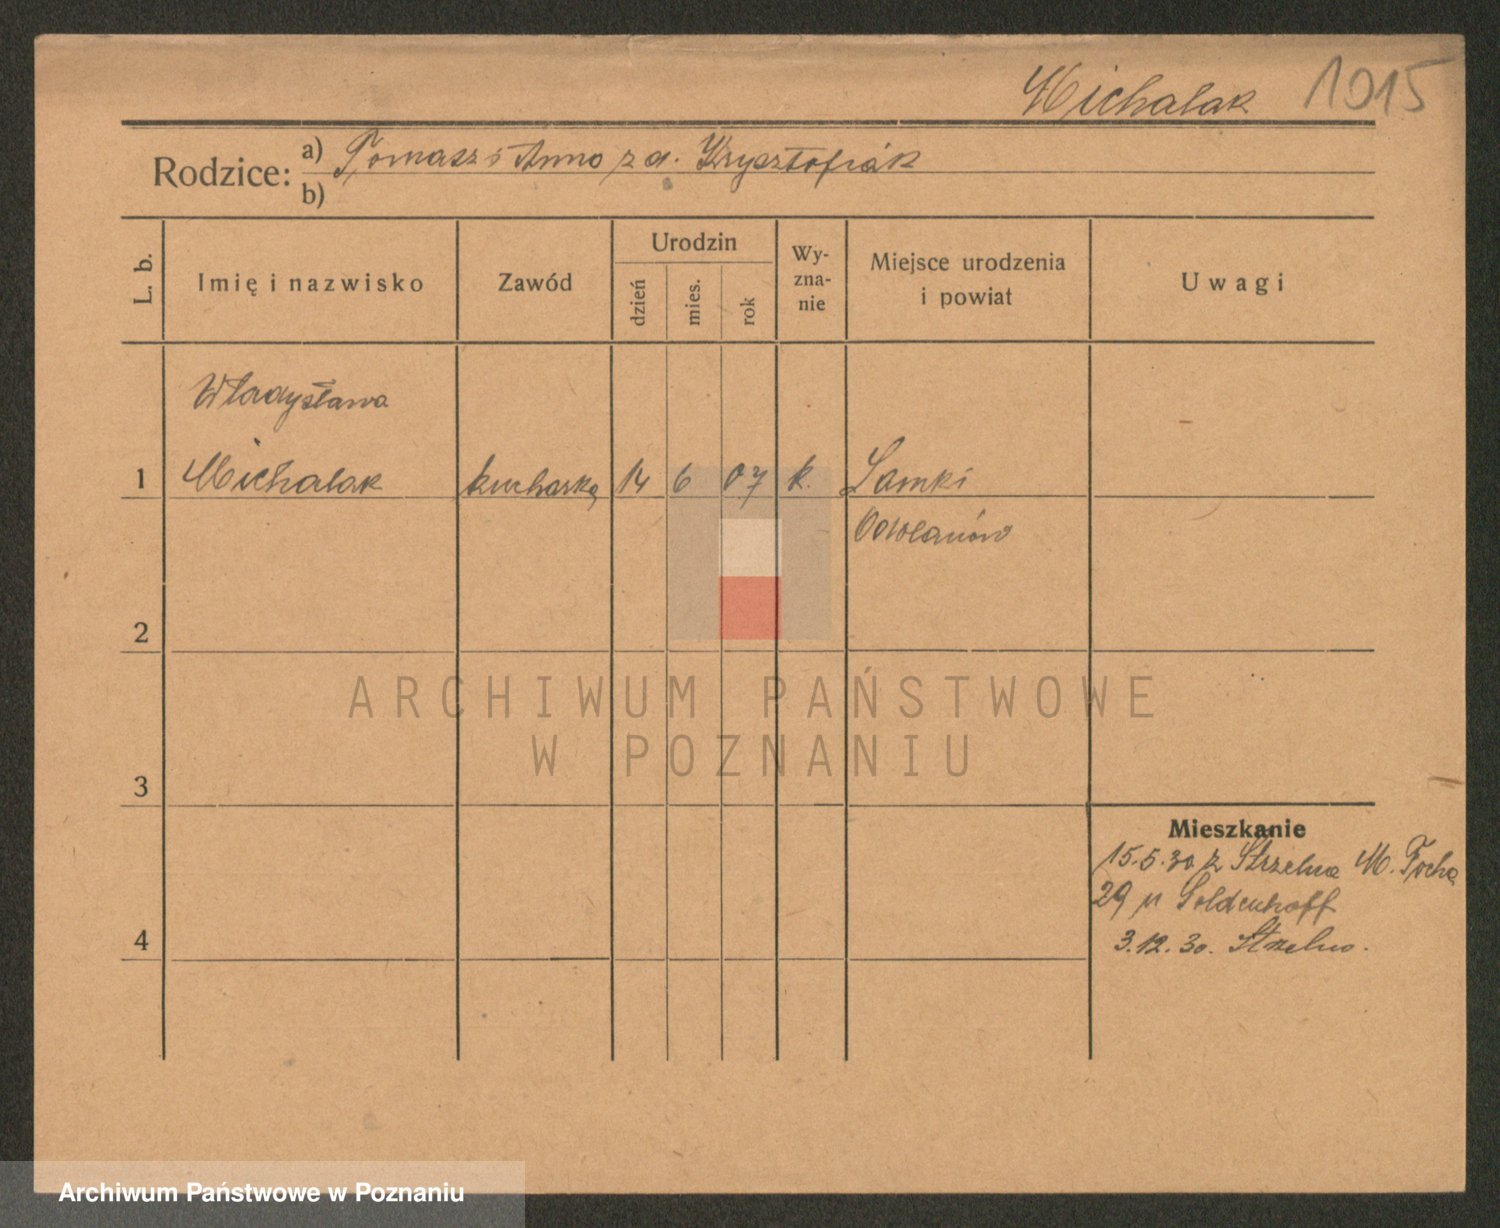 Michalak 1015
Rodzice: a) Tomasz i Anna z d. Krysztofiak
b)
L. b. Imię i nazwisko Zawód Urodzin dzień mies. rok Wy-zna-nie Miejsce urodzenia i powiat Uwagi
Władysława
1 Michalak kucharka 14 6 07 k. Lamki
Odolanów
2
ARCHIWUM PAŃSTWOWE
W POZNANIU
3
Mieszkanie
15.5.30 z Strzelna M. Focha
29 u Goldenhoff
4 3.12.30. Strzelno.
Archiwum Państwowe w Poznaniu